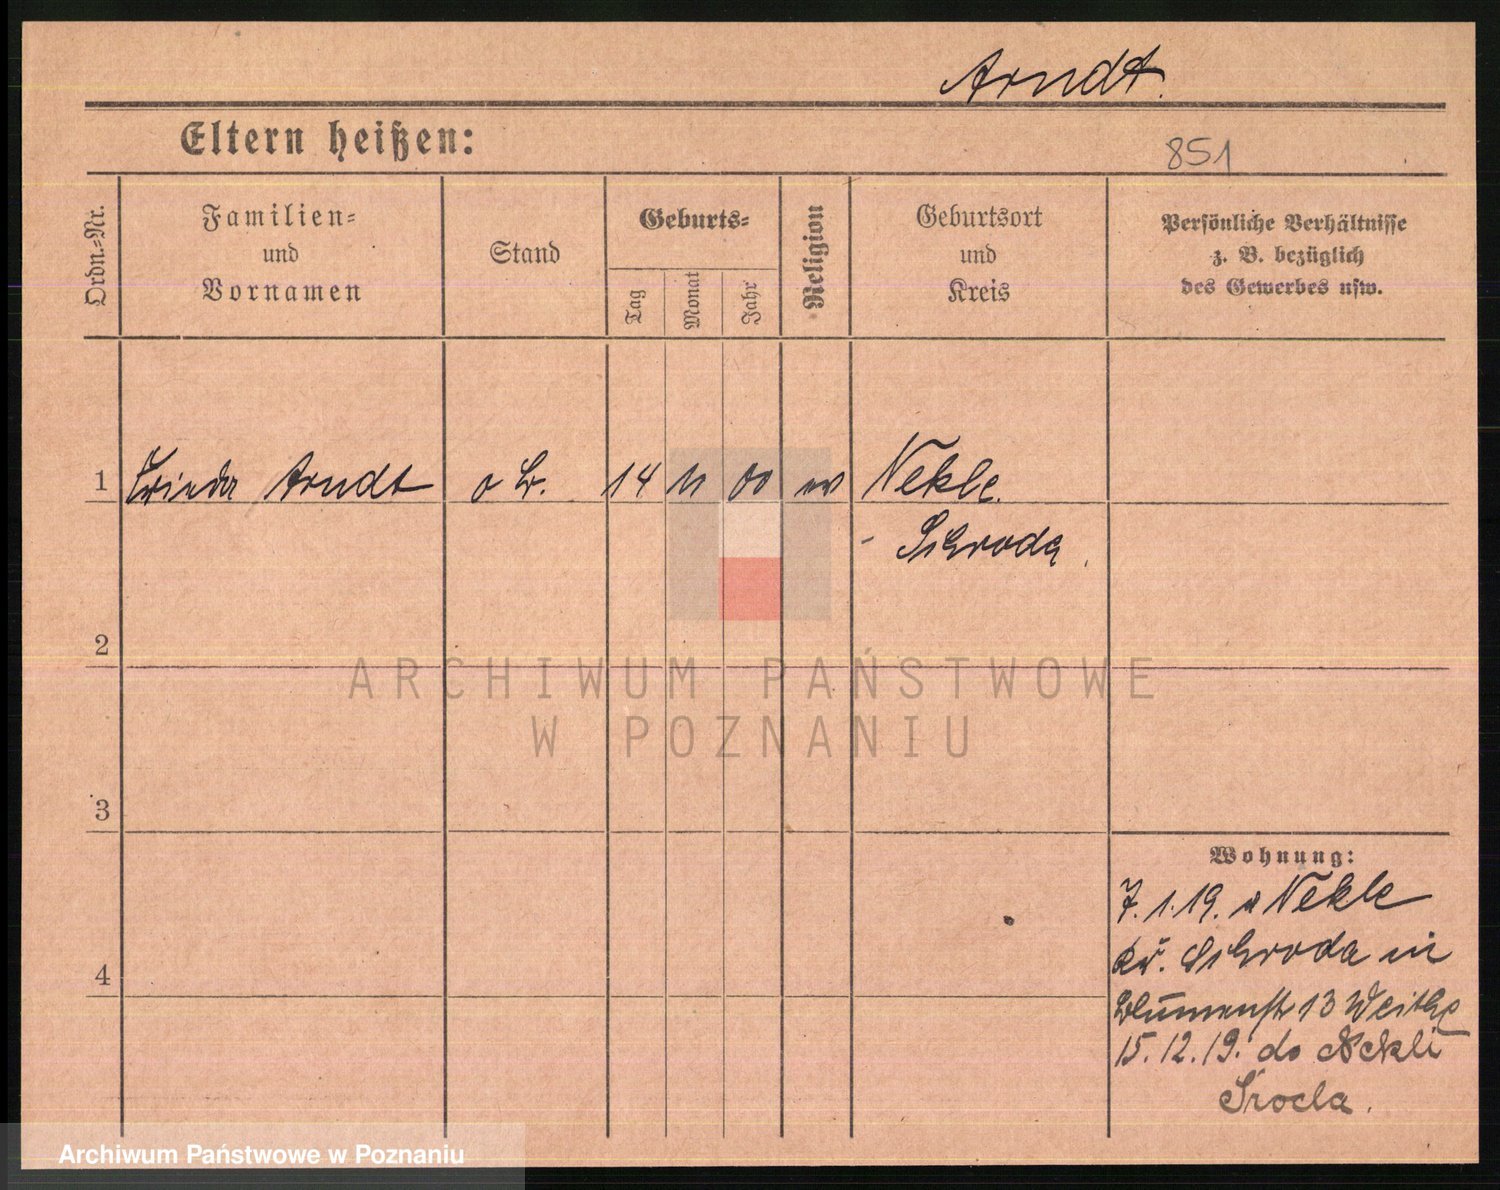 Arndt.
Eltern heißen:
851
Ordn.-Nr.
Familien-
und
Vornamen
Stand
Geburts-
Tag
Monat
Jahr
Religion
Geburtsort
und
Kreis
Persönliche Verhältnisse
z. B. bezüglich
des Gewerbes usw.
1 Frieda Arndt o B. 14 11 00 ev Nekle
- Schroda
2
3
4
Wohnung:
7.1.19. v Nekle
Kr. Schroda in
Blumenstr 13
15.12.19. do Nekli
Środa.
ARCHIWUM PAŃSTWOWE
W POZNANIU
Archiwum Państwowe w Poznaniu